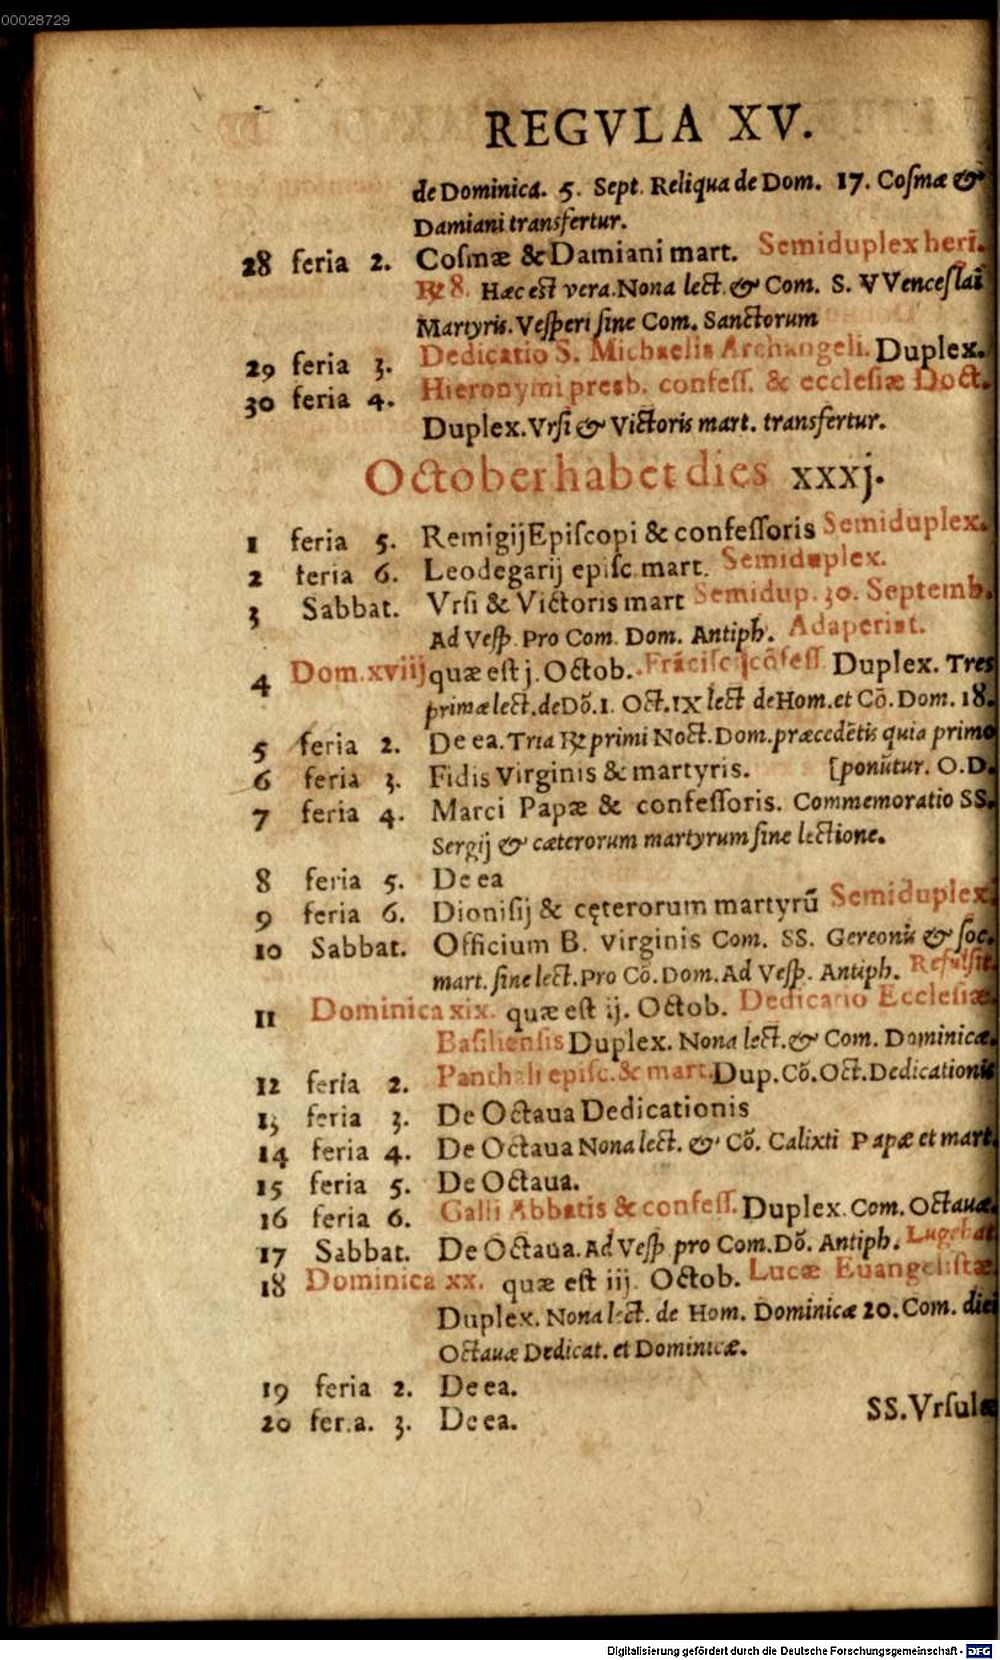 00028729
REGVLA XV.
de Dominica. 5. Sept. Reliqua de Dom. 17. Coſmæ &
Damiani transfertur.
28 feria 2. Coſmæ & Damiani mart. Semiduplex heri.
℞ 8. Hæc eſt vera. Nona lect. & Com. S. VVenceſlai
Martyris. Veſperi ſine Com. Sanctorum
29 feria 3. Dedicatio S. Michaelis Archangeli. Duplex.
30 feria 4. Hieronymi presb. confeſſ. & ecclesiæ Doct.
Duplex. Vrſi & Victoris mart. transfertur.
October habet dies xxxj.
1 feria 5. Remigij Epiſcopi & confeſſoris Semiduplex.
2 feria 6. Leodegarij epiſc. mart. Semiduplex.
3 Sabbat. Vrſi & Victoris mart Semidup. 30. Septemb.
Ad Veſp. Pro Com. Dom. Antiph. Adaperiat.
4 Dom. xviij quæ eſt j. Octob. Frāciſc. cōfeſſ. Duplex. Tres
primæ lect. de Dō. 1. Oct. IX lect de Hom. et Cō. Dom. 18.
5 feria 2. De ea. Tria ℞ primi Noct. Dom. præcedētis quia primo
6 feria 3. Fidis Virginis & martyris. [ponūtur. O. D.
7 feria 4. Marci Papæ & confeſſoris. Commemoratio SS.
Sergij & cæterorum martyrum ſine lectione.
8 feria 5. De ea
9 feria 6. Dioniſij & cęterorum martyrū Semiduplex.
10 Sabbat. Officium B. Virginis Com. SS. Gereonis & ſoc.
mart. ſine lect. Pro Cō. Dom. Ad Veſp. Antiph. Refulſit.
11 Dominica xix. quæ eſt ij. Octob. Dedicatio Eccleſiæ
Baſilienſis Duplex. Nona lect. & Com. Dominicæ.
12 feria 2. Panthali epiſc. & mart. Dup. Cō. Oct. Dedicationis
13 feria 3. De Octaua Dedicationis
14 feria 4. De Octaua Nona lect. & Cō. Calixti Papæ et mart.
15 feria 5. De Octaua.
16 feria 6. Galli Abbatis & confeſſ. Duplex. Com. Octauæ.
17 Sabbat. De Octaua. Ad Veſp pro Com. Dō. Antiph. Lugebat
18 Dominica xx. quæ eſt iij. Octob. Lucæ Euangeliſtæ.
Duplex. Nona lect. de Hom. Dominicæ 20. Com. diei
Octauæ Dedicat. et Dominicæ.
19 feria 2. De ea.
20 feria. 3. De ea.
SS. Vrſulæ
Digitalisierung gefördert durch die Deutsche Forschungsgemeinschaft - DFG